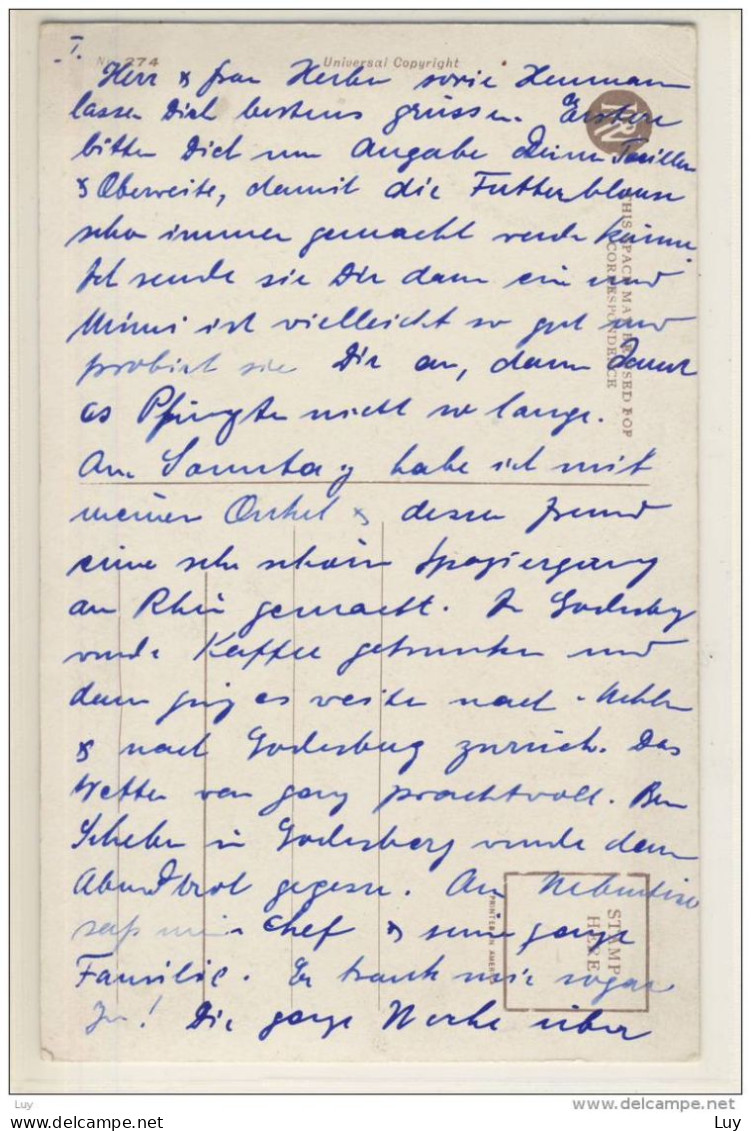 I.
No. 274
Universal Copyright
Herr & Frau Herber sowie Heumann
lassen Dich bestens grüssen. Erstere
bitten Dich um Angabe Deiner Taillen
& Oberweite, damit die Futterbluse
schon immer gemacht werden kann.
Ich sende sie Dir dann ein und
Mimi ist vielleicht so gut und
probiert sie Dir an, dann dauert
es Pfingsten nicht so lange.
Am Sonntag habe ich mit
meinem Onkel & dessen Freund
eine sehr schönen Spaziergang
am Rhein gemacht. In Godesberg
wurde Kaffee getrunken und
dann ging es weiter nach Mehlem
& nach Godesberg zurück. Das
Wetter war ganz prachtvoll. Bei
Scheben in Godesberg wurde dann
Abendbrot gegessen. Am Nebentisch
saß mein Chef & seine ganze
Familie. Er trank mir sogar
zu! Die ganze Woche über
TRN
THIS SPACE MAY BE USED FOR
CORRESPONDENCE
STAMP
HERE
PRINTED IN AMERICA
Luy
delcampe.net
Luy
Luy